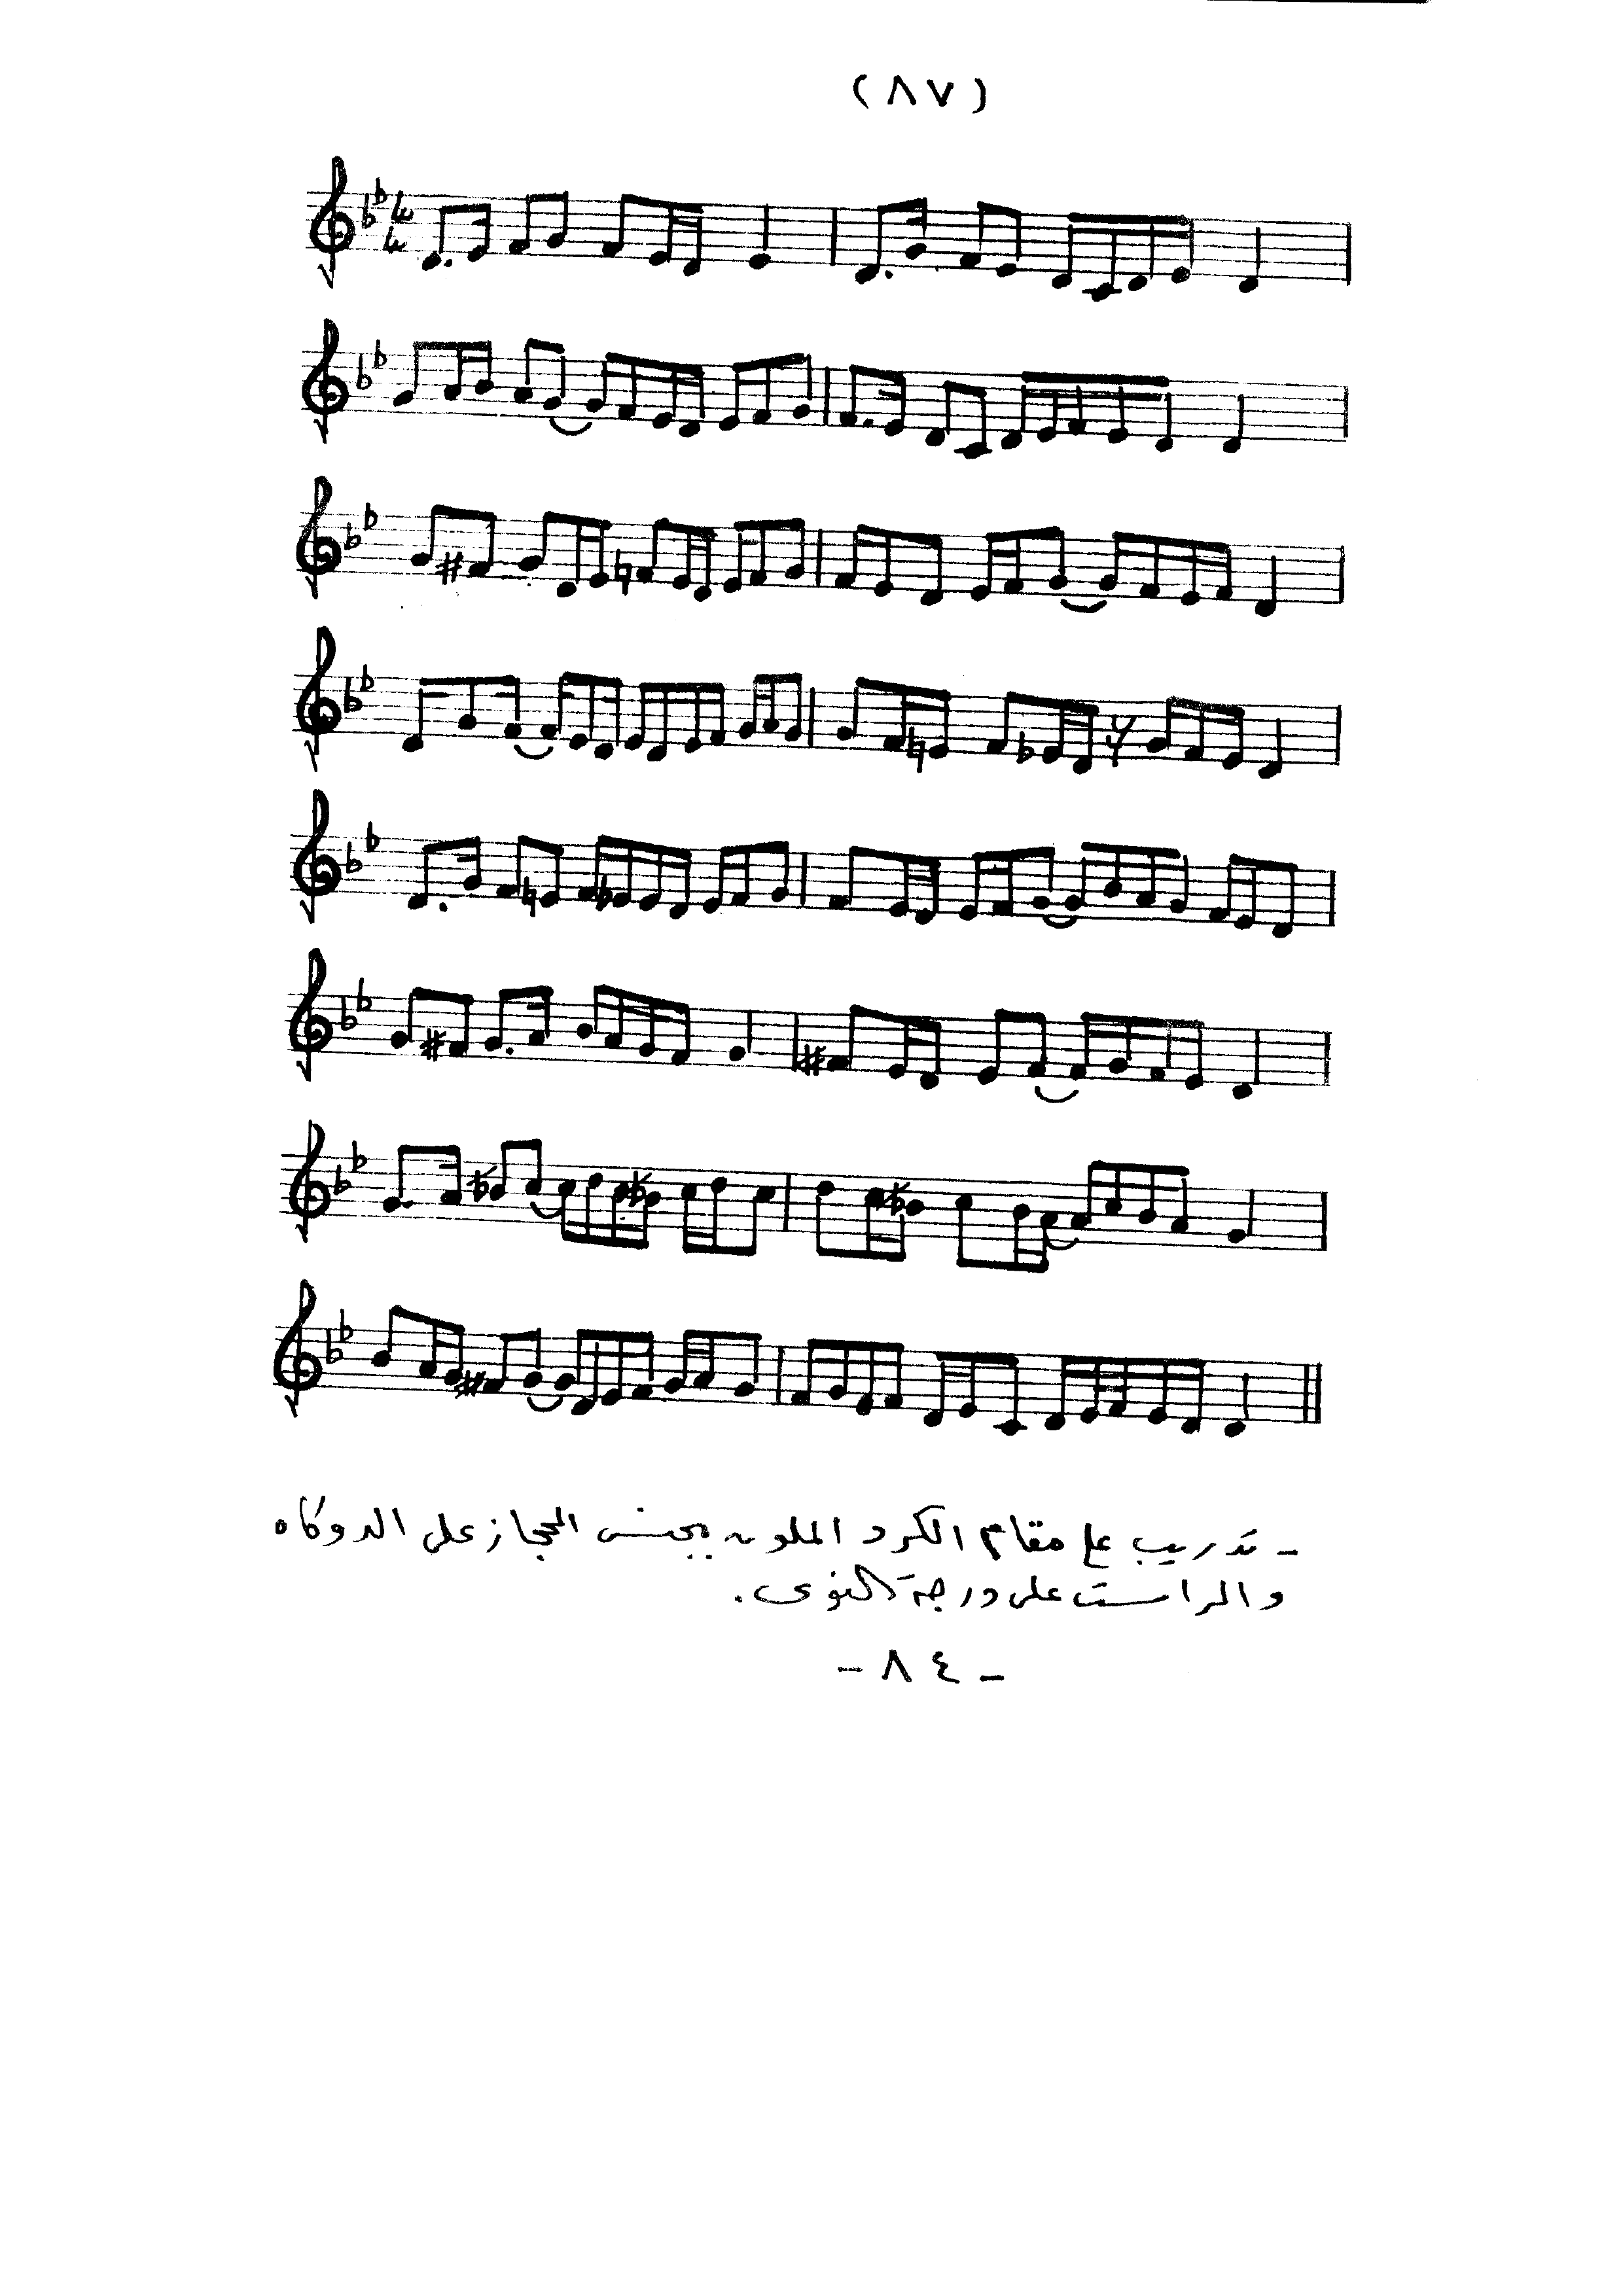 (٨٧)
- تدريب على مقام الكرد الملون بجنس الحجاز على الدوكاه
والراست على درجة النوى.
- ٨٤ -